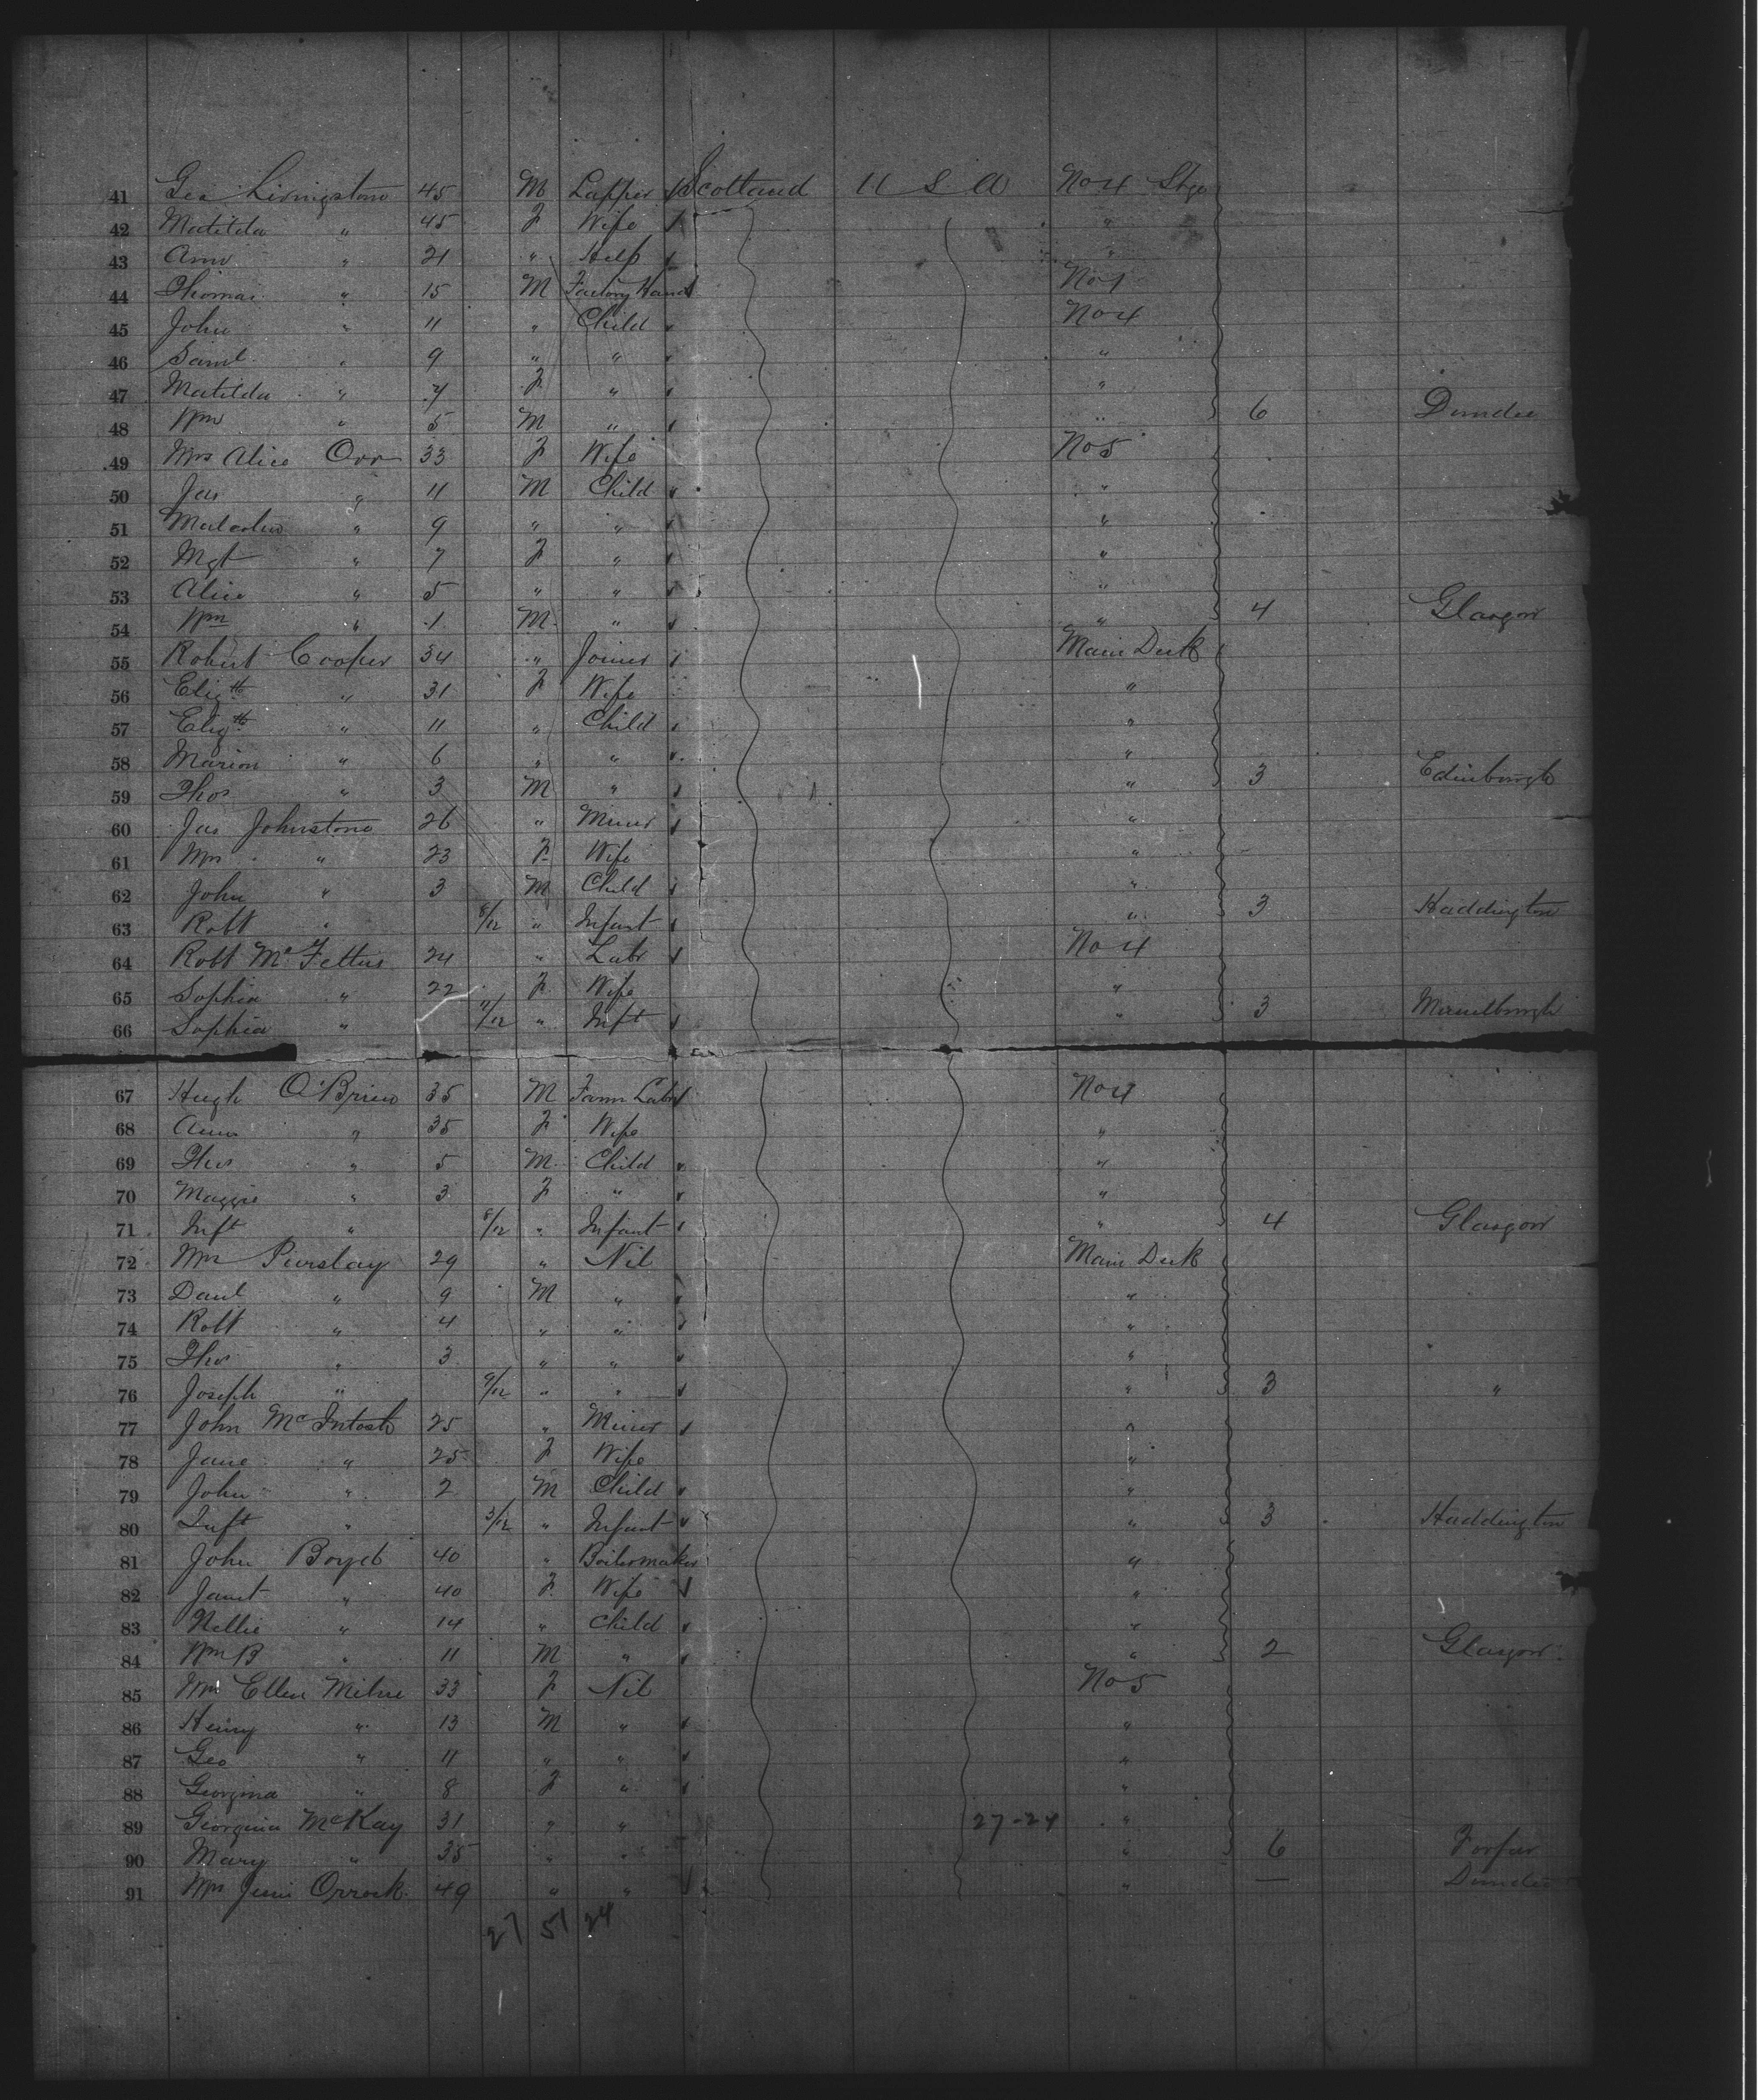 41 Geo Livingstone 45 M Lapper Scotland U S A No 4 Stge
42 Matilda " 45 F Wife "
43 Ann " 21 " Help "
44 Thomas " 15 M Factory Hand No 1
45 John " 11 " Child No 4
46 Saml " 9 " " "
47 Matilda " 7 F " "
48 Wm " 5 M " " 6 Dundee
49 Mrs Alice Orr 33 F Wife No 5
50 Jas " 11 M Child "
51 Malcolm " 9 " " "
52 Mgt " 7 F " "
53 Alice " 5 " " "
54 Wm " 1 M " " 4 Glasgow
55 Robert Cooper 34 " Joiner Main Deck
56 Elizth " 31 F Wife "
57 Elizth " 11 " Child "
58 Marion " 6 " " "
59 Thos " 3 M " " 3 Edinburgh
60 Jas Johnstone 26 " Miner "
61 Mrs " 23 F Wife "
62 John " 3 M Child "
63 Robt " 8/12 " Infant " 3 Haddington
64 Robt Mc Fettus 24 " Labr No 4
65 Sophia " 22 F Wife "
66 Sophia " 11/12 " Inft " 3
67 Hugh O'Brien 35 M Farm Labr No 4
68 Ann " 35 F Wife "
69 Thos " 5 M Child "
70 Maggie " 3 F " "
71 Inft " 8/12 " Infant " 4 Glasgow
72 Mrs Purslay 29 " Nil Main Deck
73 Danl " 9 M " "
74 Robt " 4 " " "
75 Thos " 3 " " "
76 Joseph " 9/12 " " " 3 "
77 John McIntosh 25 " Miner "
78 Jane " 25 F Wife "
79 John " 2 M Child "
80 Inft " 3/12 " Infant " 3 Haddington
81 John Boyd 40 " Boilermaker "
82 Janet " 40 F Wife "
83 Nellie " 14 " Child "
84 Wm B " 11 M " " 2 Glasgow
85 Mrs Ellen Milne 33 F Nil No 5
86 Henry " 13 M " "
87 Geo " 11 " " "
88 Georgina " 8 F " "
89 Georgina McKay 31 " " 27-24 "
90 Mary " 35 " " " 6 Forfar
91 Mrs Orrock 49 " " " — Dundee
27 51 24